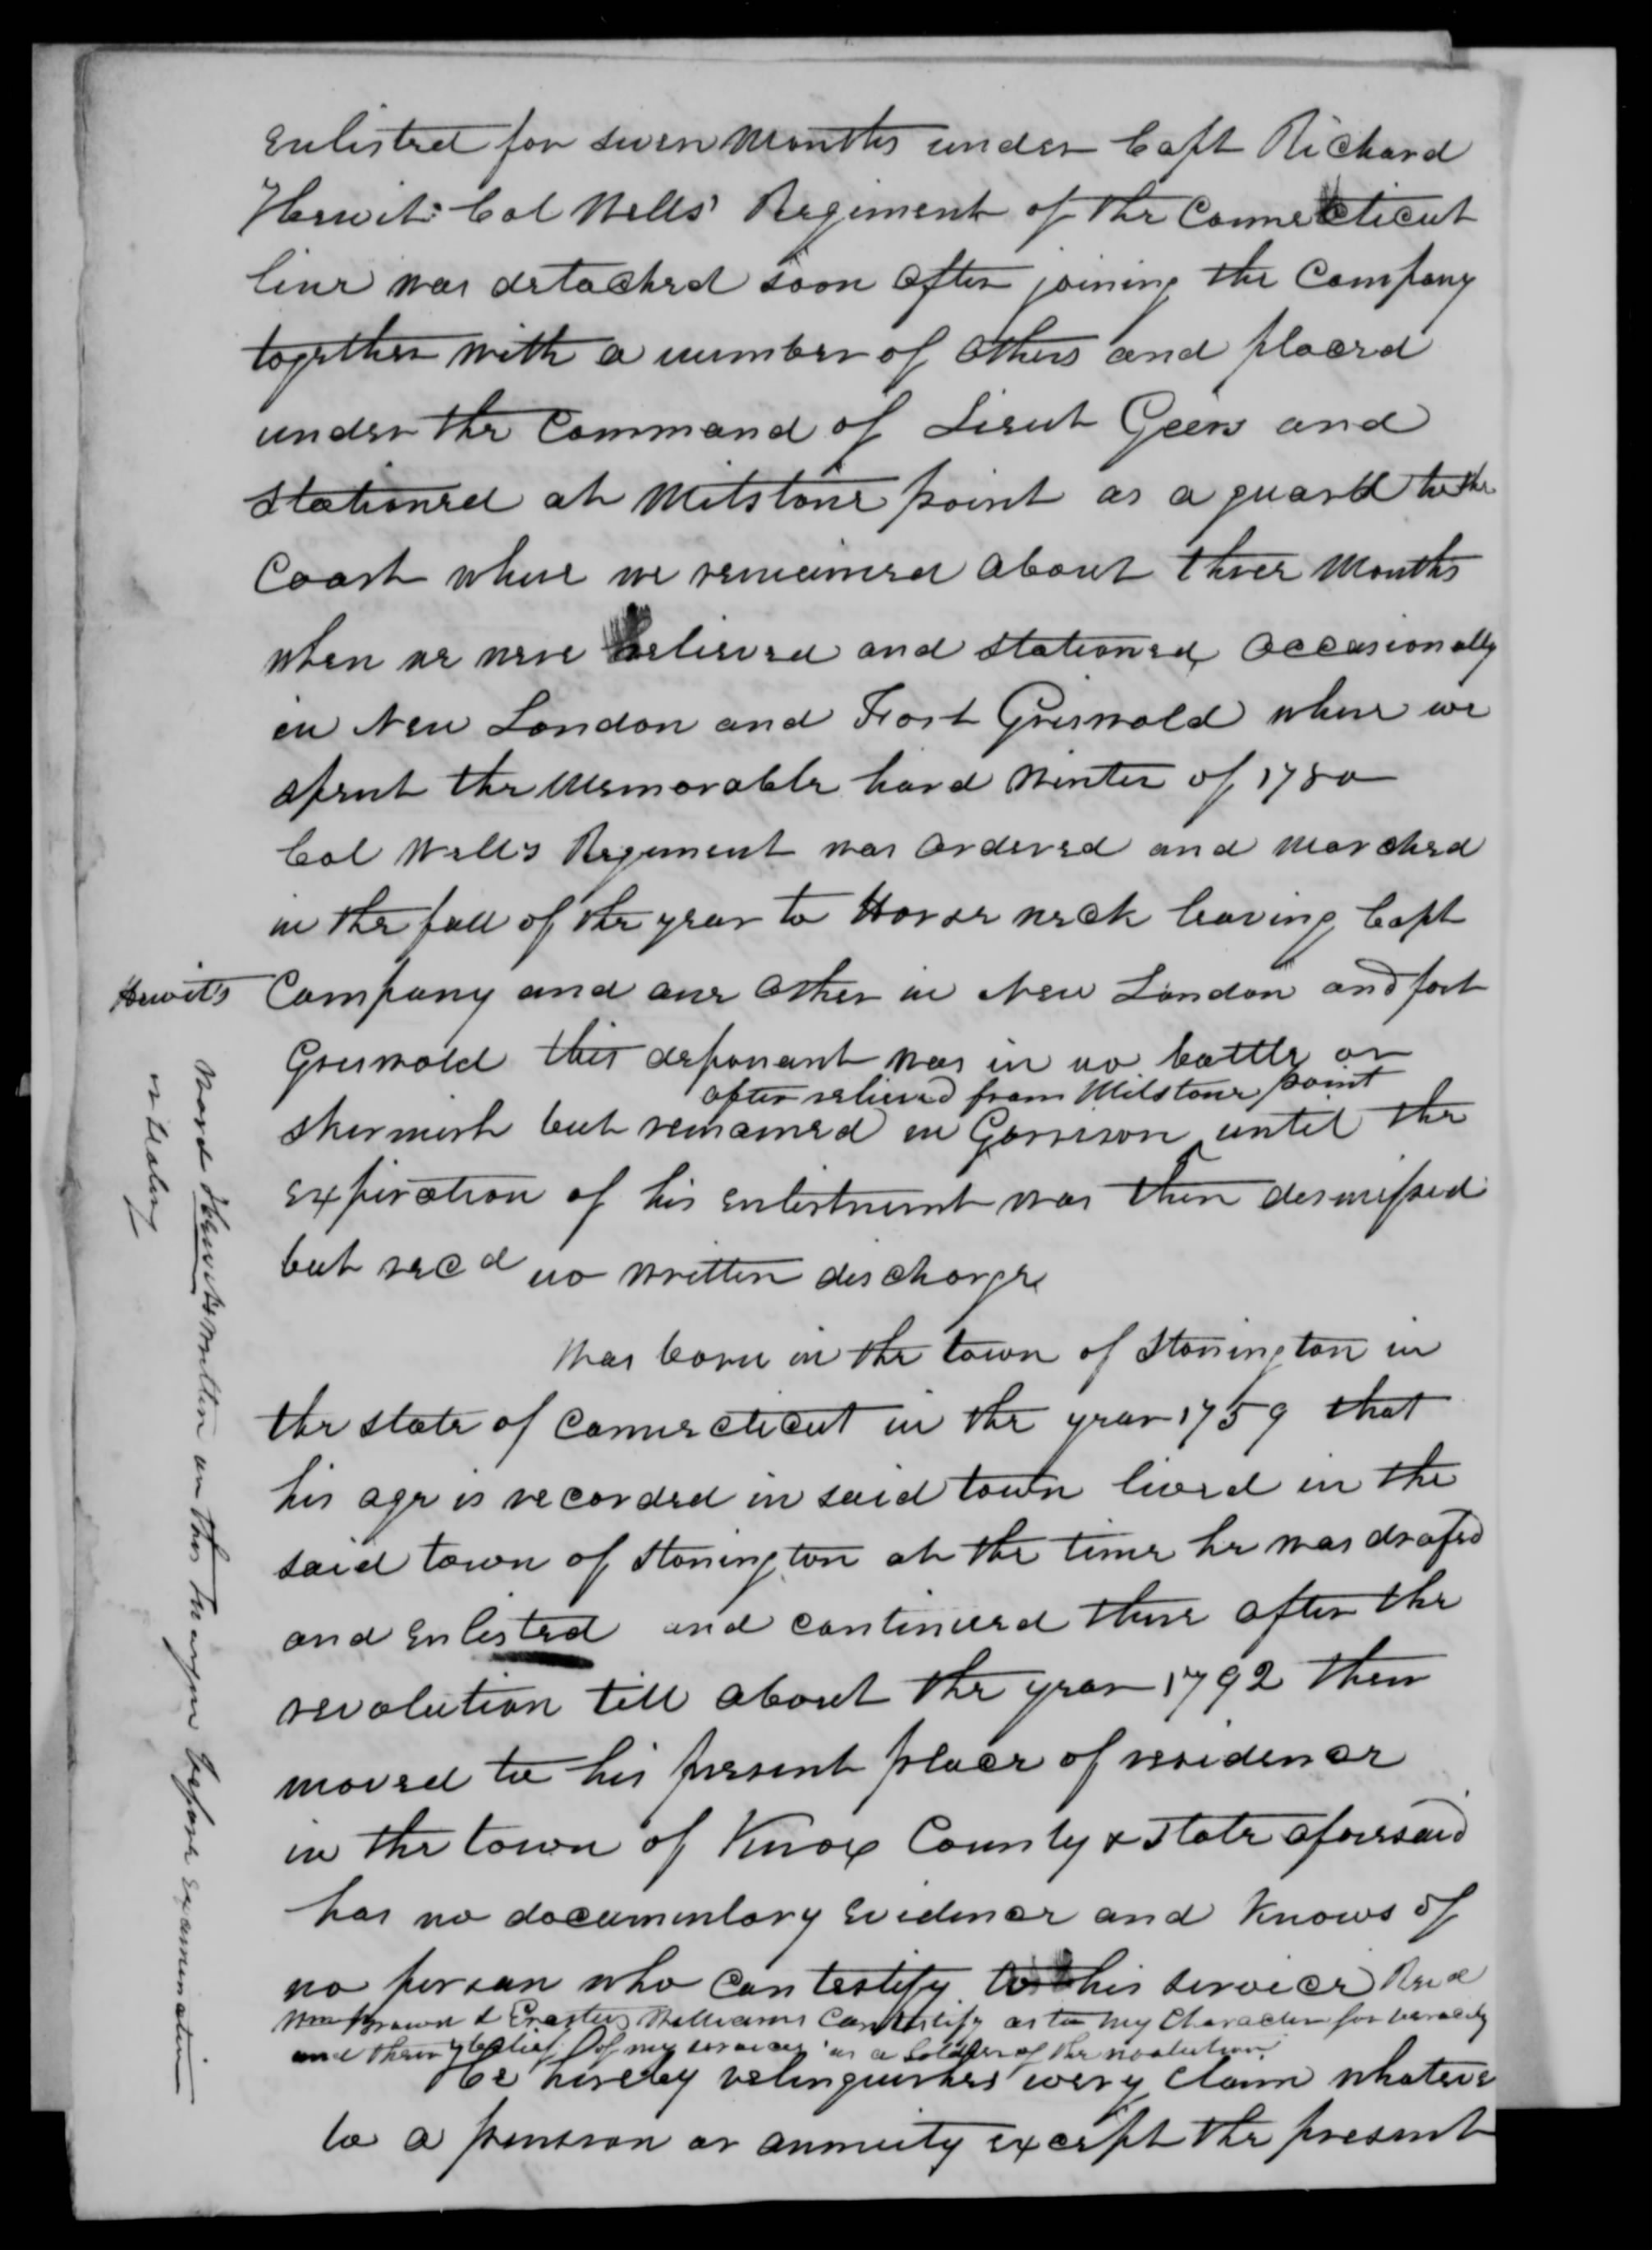 Enlisted for seven months under Capt Richard
Hewit Col Wells' Regiment of the Connecticut
line was detached soon after joining the Company
together with a number of others and placed
under the Command of Lieut Geers and
stationed at Milstone point as a guard to the
Coast where we remained about three months
when we were relieved and stationed occasionally
in New London and Fort Griswold where we
spent the memorable hard winter of 1780
Col Wells Regiment was ordered and marched
in the fall of the year to Horse neck leaving Capt
Hewits Company and one other in New London and fort
Griswold this deponant was in no battle or
after relieved from Milstone point
skirmish but remained in Garrison ^ until the
expiration of his enlistment was then dismissed
but recd no written discharge
Was born in the town of Stonington in
the state of Connecticut in the year 1759 that
his age is recorded in said town lived in the
said town of Stonington at the time he was drafed
and enlisted and continued there after the
revolution till about the year 1792 then
moved to his present place of residence
in the town of Knox County & State aforesaid
has no documentary evidence and knows of
no person who can testify to his service
Wm Brown & Erastus Williams Can testify as to my Character for veracity
and their belief of my services as a Soldier of the revolution
He hereby relinquishes every claim whatever
to a pension or annuity except the present
Word Hewits written on this margin before examination